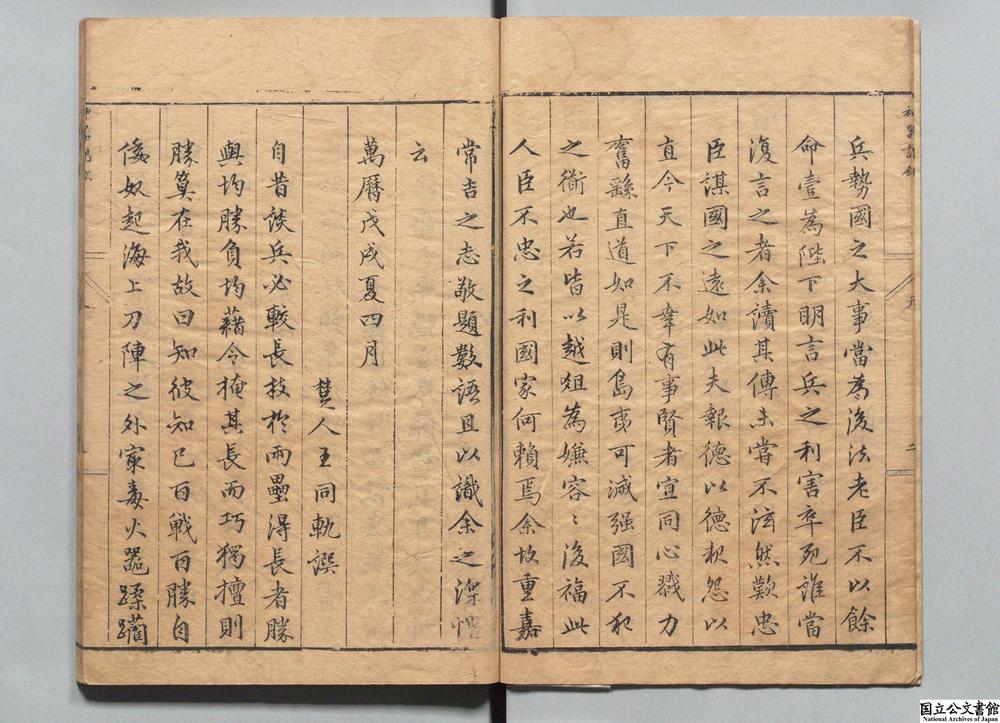 兵勢國之大事當為後法老臣不以餘
命壹為陛下明言兵之利害卒死誰當
復言之者余讀其傳未嘗不泫然歎忠
臣謀國之遠如此夫報德以德報怨以
直今天下不幸有事賢者宜同心戮力
奮繇直道如是則島夷可滅强國不犯
之衛也若皆以越俎為嫌容〻後福此
人臣不忠之利國家何賴焉余故重嘉
常吉之志敬題數語且以識余之深
云
萬曆戊戌夏四月
楚人王同軌譔
自昔談兵必較長技於兩壘得長者勝
與均勝負均藉令掩其長而巧獨擅則
勝筭在我故曰知彼知己百戰百勝自
倭奴起海上刀陣之外寂毒火器蹂躪
国立公文書館
National Archives of Japan